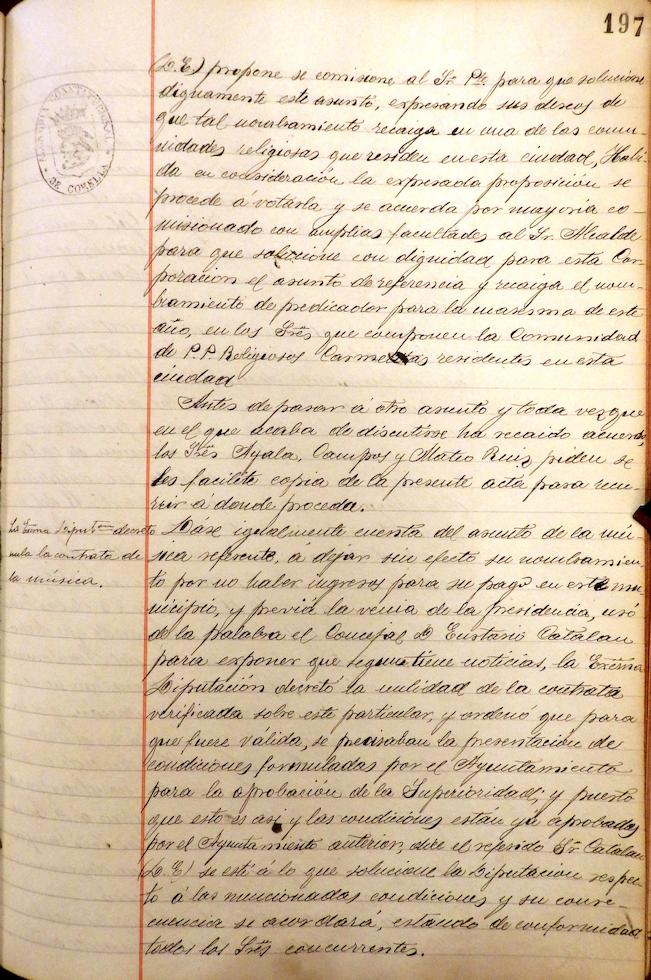 197
ALCALDIA CONSTITUCIONAL
DE CORELLA
(D.E.) propone se comisione al Sr. Pte. para que solucione
dignamente este asunto, expresando sus deseos de
que tal nombramiento recaiga en una de las comu-
nidades religiosas que residen en esta ciudad, Habi-
da en consideración la expresada proposición se
procede á votarla y se acuerda por mayoria co-
misionado con amplias facultades al Sr. Alcalde
para que solucione con dignidad para esta Cor-
poracion el asunto de referencia y recaiga el nom-
bramiento de predicador para la cuaresma de este
año, en los Srēs que componen la Comunidad
de P.P. Religiosos Carmelitas residentes en esta
ciudad
Antes de pasar á otro asunto y toda vez que
en el que acaba de discutirse ha recaido acuerdo,
los Srēs Ayala, Campos y Mateo Ruiz piden se
les facilite copia de la presente acta para recu-
rrir á donde proceda.
La Exma Diputon decreto
nula la contrata de
la música.
Dáse igualmente cuenta del asunto de la mú-
sica referente, a dejar sin efecto su nombramien-
to por no haber ingresos para su pago en este mu-
nicipio, y previa la venia de la presidencia, usó
de la palabra el Concejal D. Eustasio Catalan
para exponer que segun tiene noticias, la Excma
Diputación decretó la nulidad de la contrata
verificada sobre este particular, y ordenó que para
que fuere valida, se precisaban la presentación de
condiciones formuladas por el Ayuntamiento
para la aprobación de la Superioridad; y puesto
que esto es asi y las condiciones están ya aprobadas
por el Ayuntamiento anterior, dice el referido Sr. Catalan
(D.E.) se esté á lo que solucione la Diputación respec-
to á las mencionadas condiciones y su conse-
cuencia se acordará, estando de conformidad
todos los Srēs concurrentes.